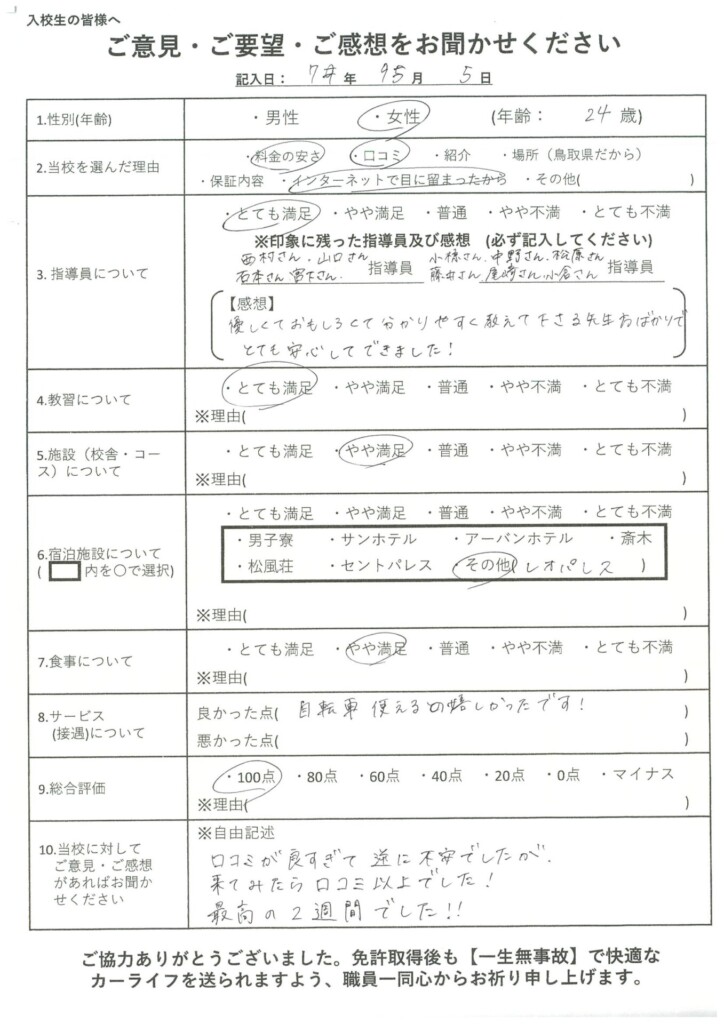 入校生の皆様へ
ご意見・ご要望・ご感想をお聞かせください
記入日： 年 月 5 日
1.性別(年齢) ・男性 ・女性 (年齢： 24 歳)
2.当校を選んだ理由 ・料金の安さ ・口コミ ・紹介 ・場所（鳥取県だから）
・保証内容 ・インターネットで目に留まったから ・その他( )
3. 指導員について ・とても満足 ・やや満足 ・普通 ・やや不満 ・とても不満
※印象に残った指導員及び感想 (必ず記入してください)
西村さん・山口さん 小椋さん、中野さん、松原さん
石本さん、宮下さん、 指導員 藤井さん、尾崎さん、小倉さん 指導員
【感想】
優しくておもしろくて分かりやすく教えて下さる先生ばかりで
とても安心してできました！
4.教習について ・とても満足 ・やや満足 ・普通 ・やや不満 ・とても不満
※理由( )
5.施設（校舎・コー
ス）について ・とても満足 ・やや満足 ・普通 ・やや不満 ・とても不満
※理由( )
6.宿泊施設について
( 内を○で選択) ・とても満足 ・やや満足 ・普通 ・やや不満 ・とても不満
・男子寮 ・サンホテル ・アーバンホテル ・斎木
・松風荘 ・セントパレス ・その他( レオパレス )
※理由( )
7.食事について ・とても満足 ・やや満足 ・普通 ・やや不満 ・とても不満
※理由( )
8.サービス
(接遇)について 良かった点( 自転車使えるの嬉しかったです！ )
悪かった点( )
9.総合評価 ・100点 ・80点 ・60点 ・40点 ・20点 ・0点 ・マイナス
※理由( )
10.当校に対して
ご意見・ご感想
があればお聞か
せください
※自由記述
口コミが良すぎて逆に不安でしたが、
来てみたら口コミ以上でした！
最高の2週間でした！！
ご協力ありがとうございました。免許取得後も【一生無事故】で快適な
カーライフを送られますよう、職員一同心からお祈り申し上げます。